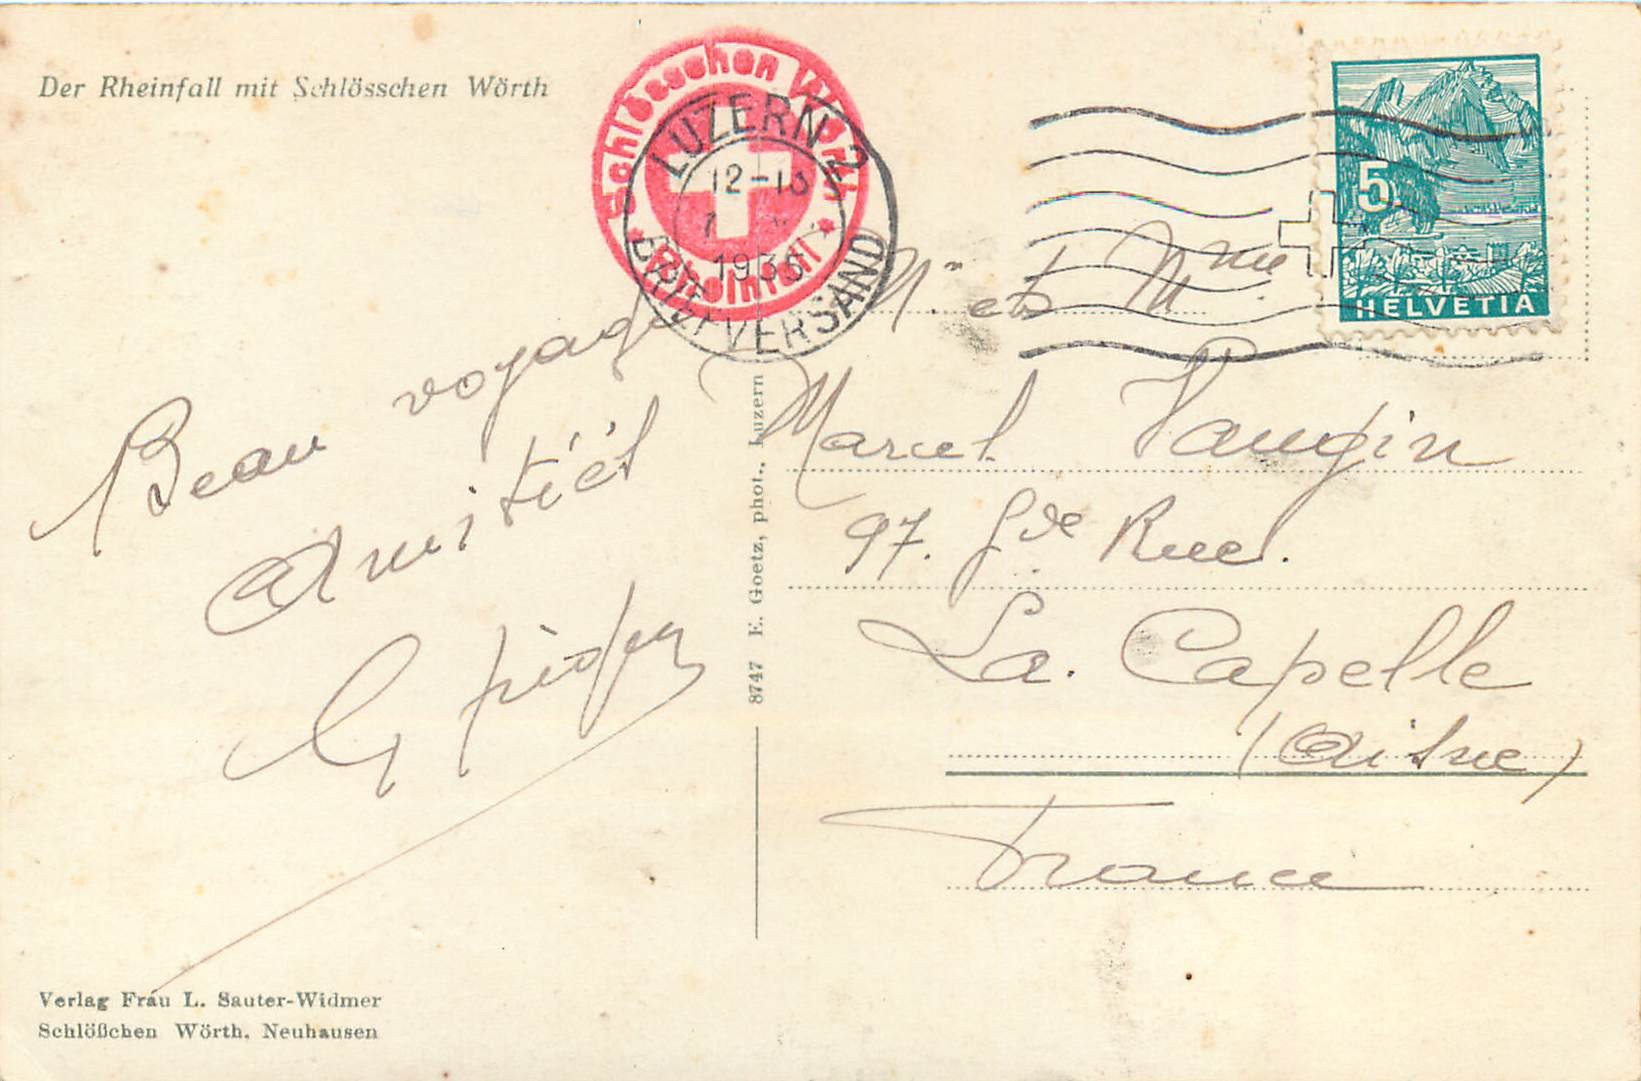 Der Rheinfall mit Schlösschen Wörth
Schlösschen Wörth
Rheinfall
LUZERN 2
12-13
193
BRIEFVERSAND
5
HELVETIA
Beau voyage
Amitiés
Mr et Mme
Marcel Paugin
97. Gde Rue.
La Capelle
(Aisne)
France
8747 E. Goetz, phot., Luzern
Verlag Frau L. Sauter-Widmer
Schlößchen Wörth, Neuhausen